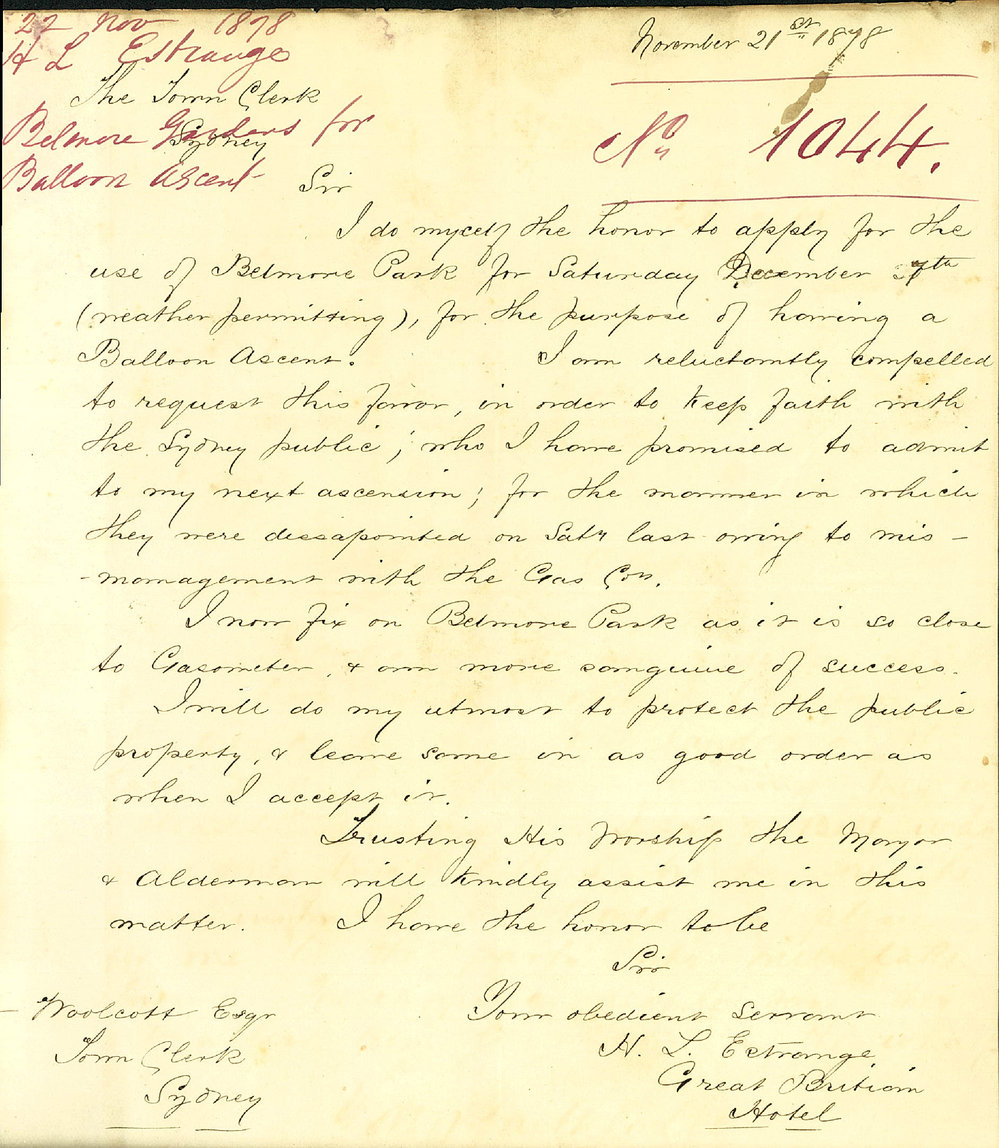 22 Nov 1878
H L Estrange
Belmore Gardens for
Balloon Ascent
November 21st 1878
No 1044.
The Town Clerk
Sydney
Sir
I do myself the honor to apply for the
use of Belmore Park for Saturday December 7th
(weather permitting), for the purpose of having a
Balloon Ascent. I am reluctantly compelled
to request this favor, in order to keep faith with
the Sydney public; who I have promised to admit
to my next ascension; for the manner in which
they were dissapointed on Saty last owing to mis-
-management with the Gas Coy.
I now fix on Belmore Park as it is so close
to Gasometer, & am more sanguine of success.
I will do my utmost to protect the public
property, & leave same in as good order as
when I accept it.
Trusting His Worship the Mayor
& Alderman will kindly assist me in this
matter. I have the honor to be
Sir
Your obedient servant
H. L. Estrange
Great Britiain
Hotel
- Woolcott Esqr
Town Clerk
Sydney